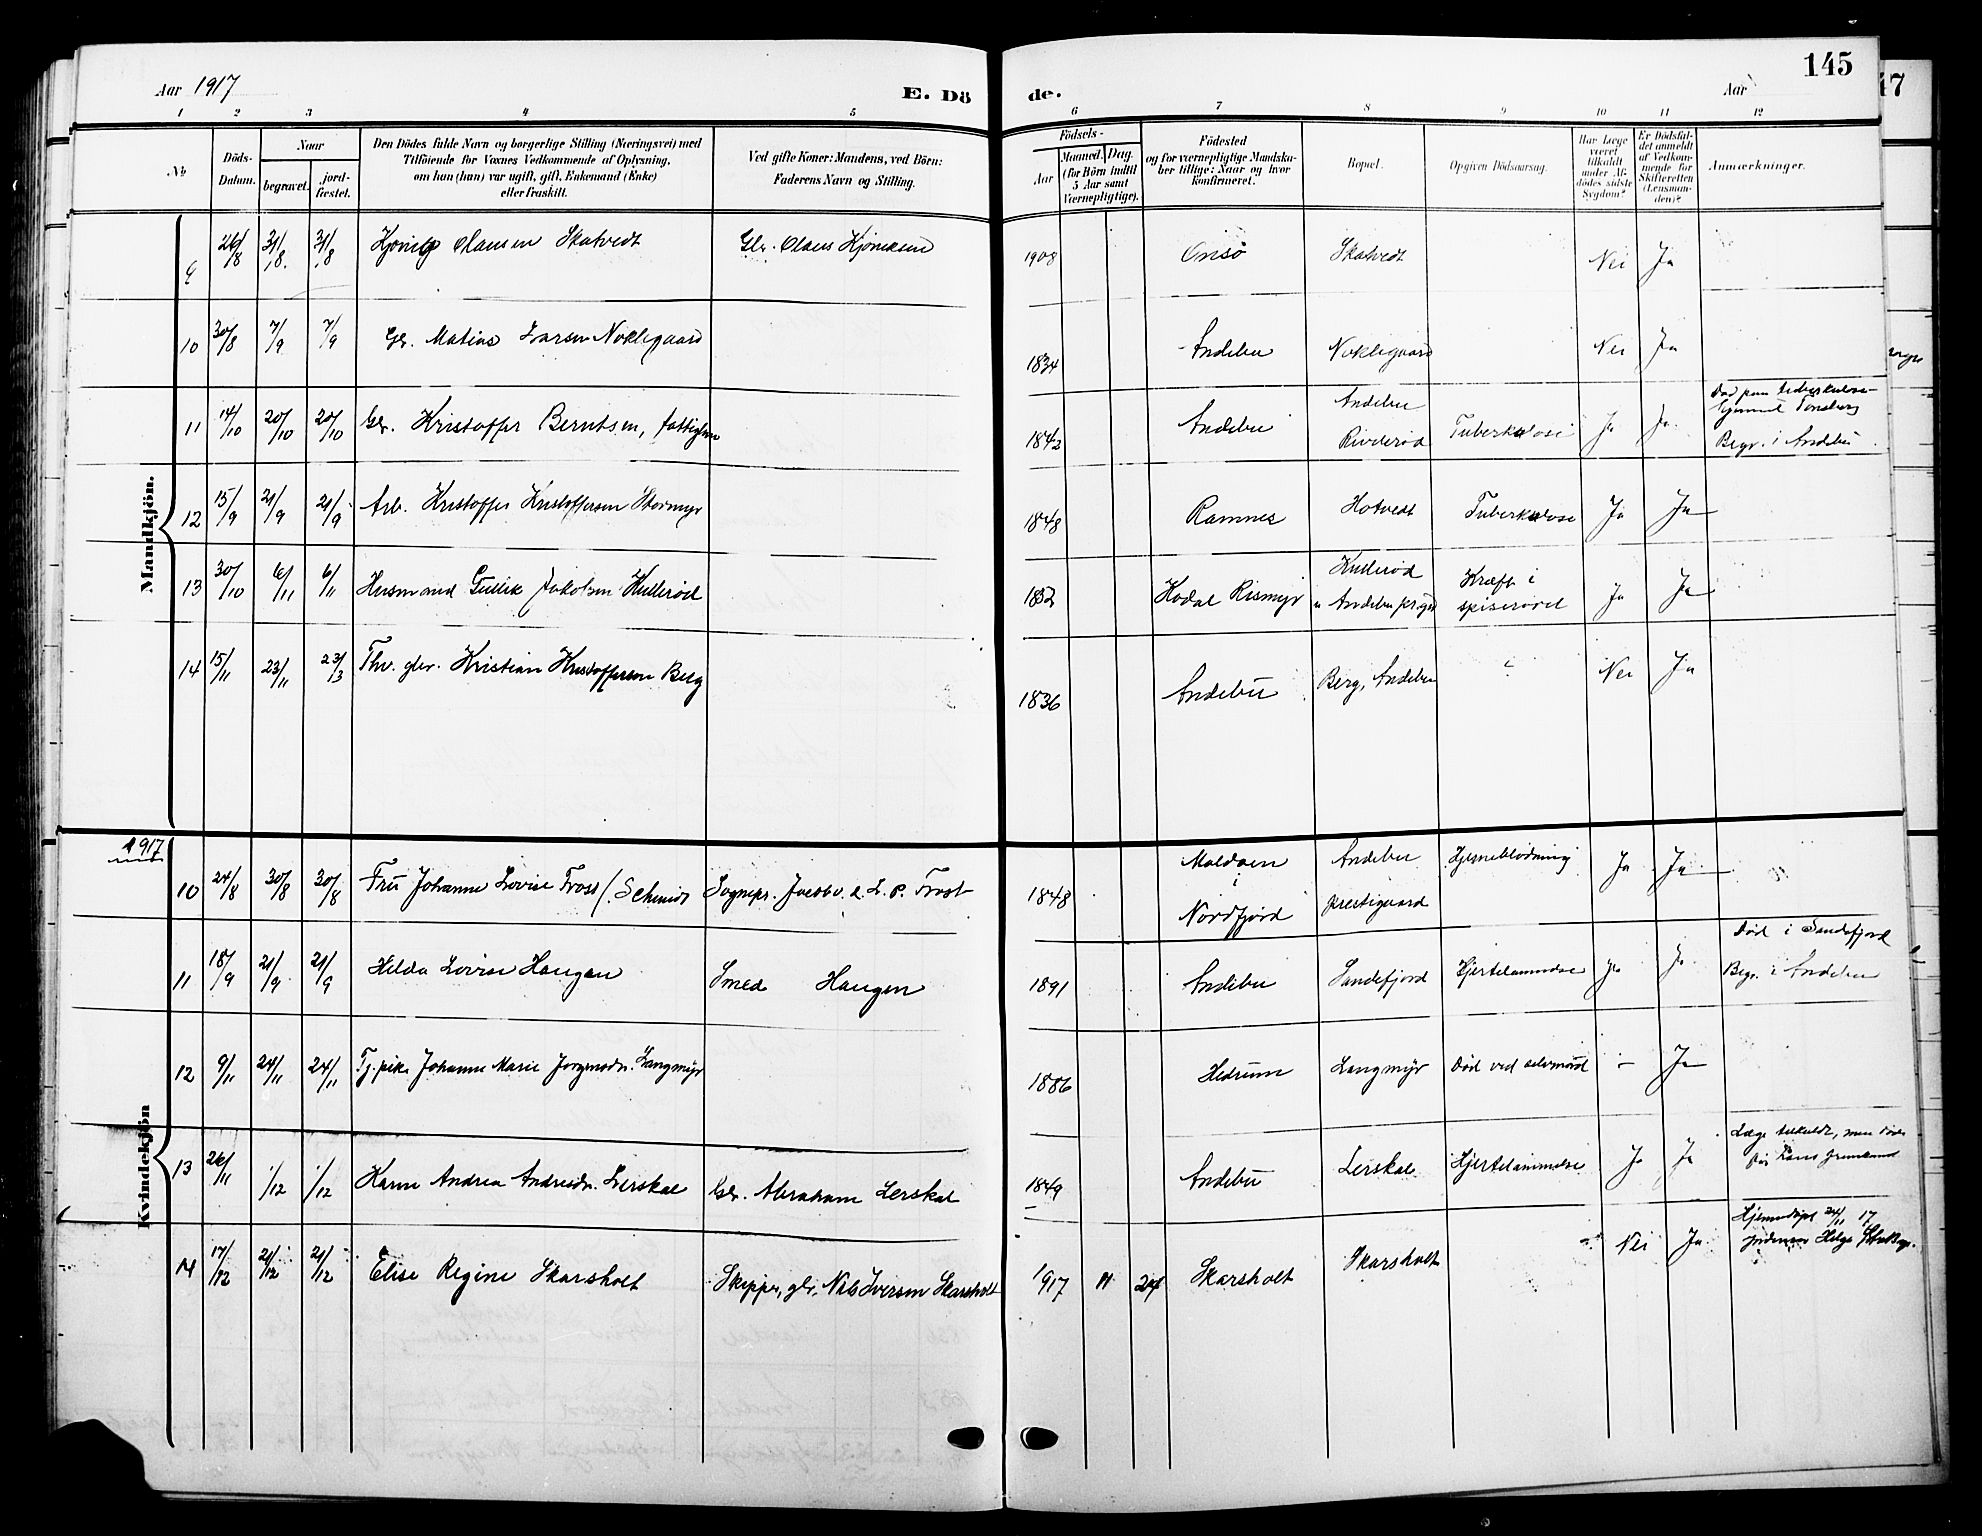 145
Aar 1917
E. Dö
de.
Aar
47
1 2 3 4 5 6 7 8 9 10 11 12
No
Döds-Datum.
Naar
begravet.
jord-fæstet.
Den Dödes fulde Navn og borgerlige Stilling (Næringsvei) med
Tilföiende for Voxnes Vedkommende af Oplysning,
om han (hun) var ugift, gift, Enkemand (Enke)
eller fraskilt.
Ved gifte Koner: Mandens, ved Börn:
Faderens Navn og Stilling.
Födsels-
Aar
Maaned. Dag.
(for Börn indtil
5 Aar samt
Værnepligtige).
Födested
og for værnepligtige Mandska-
ber tillige: Naar og hvor
konfirmeret.
Bopæl.
Opgiven Dödsaarsag.
Har Læge
været
tilkaldt
under Af-
dödes sidste
Sygdom?
Er Dödsfal-
det anmeldt
af Vedkom-
mende for
Skifteretten
(Lensman-
den)?
Anmærkninger.
Mandkjön.
9 26/8 31/8. 31/8 Olausen Skatvedt Gbr. Olaus 1908 Skatvedt Nei Ja
10 30/8 7/9 7/9 Gbr. Matias Larsen Nøklegaard 1834 Andebu Nøklegaard Nei Ja
11 14/10 20/10 20/10 Gbr. Kristoffer Berntsen, 1842 Andebu Andebu Tuberkulose Ja Ja Død paa tuberkulose-
hjemmet Tønsberg
Begr. i Andebu
12 15/9 21/9 21/9 Arb. Kristoffer Kristoffersen Stormyr 1848 Ramnes Hotvedt Tuberkulose Ja Ja
13 30/10 6/11 6/11 Husmand Gullik Jakobsen Hullerød Hodal Rismyr Kræft i
spiserøret Ja Ja
14 15/11 23/11 23/3 Fhv. gbr. Kristian Kristoffersen Berg 1836 Andebu Berg, Andebu ? Nei Ja
1917
Kvindekjön
10 24/8 30/8 30/8 Fru Johanne Lovise Trost f. Schmidt Sognepr. Jacob v. d. L. P. Trost 1848 Maldøen
i
Nordfjord Andebu
prestegaard Hjerneblødning Ja Ja
11 18/9 21/9 21/9 Hilda Lovise Haugen Smed Haugen 1891 Andebu Sandefjord Hjertelammelse Ja Ja Død i Sandefjord
Begr. i Andebu
12 9/11 24/11 24/11 Tj.pike Johanne Marie Jørgensdtr. Langmyr 1886 Hedrum Langmyr Død ved selvmord - Ja
13 26/11 1/12 1/12 Karen Andrea Andresdtr. Lerskal Gbr. Abraham Lerskal 1849 Andebu Lerskal Hjertelammelse Ja Ja Læge tilkaldt, men døde
før hans fremkomst
14 17/12 21/12 21/12 Elise Regine Skarsholt Skipper, gbr. Nils Iversen Skarsholt 1917 11 24 Skarsholt Skarsholt Nei Ja Hjemmedøpt 24/11 17